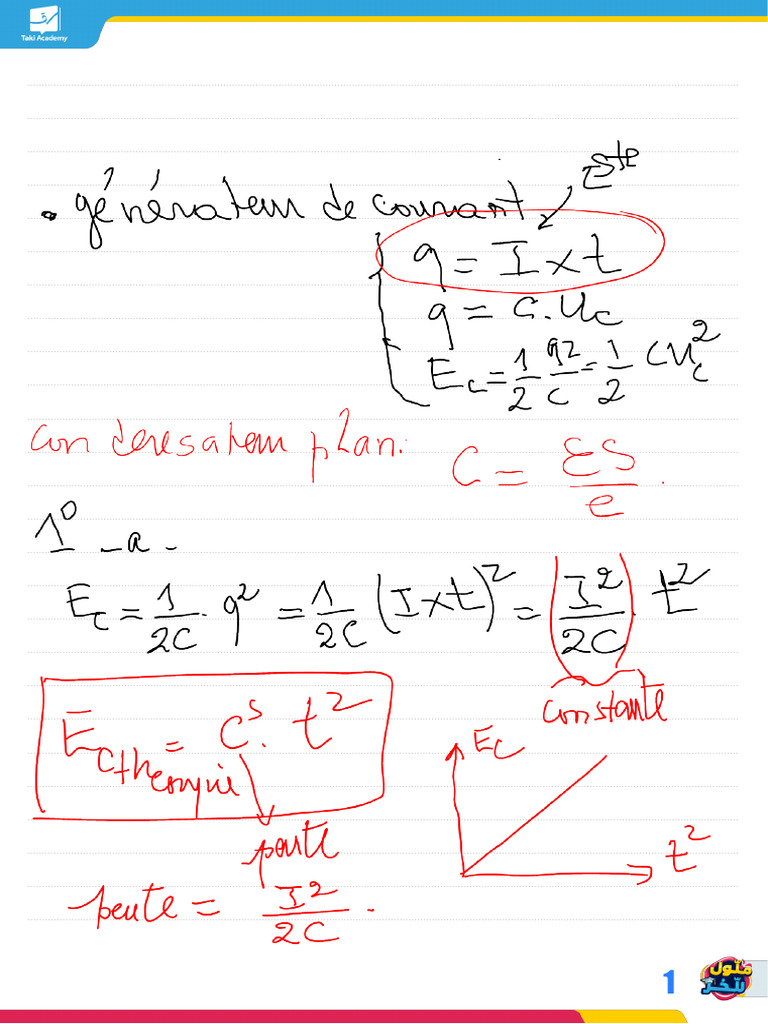 Taki Academy
• générateur de courant
cste
q = I x t
q = C.Uc
Ec = 1/2 q²/C = 1/2 CUc²
condensateur plan: C = ES/e.
1° -a-
Ec = 1/2C . q² = 1/2C (I x t)² = (I²/2C) . t²
constante
Ec théorique = cs. t²
Ec
pente
t²
pente = I²/2C .
1